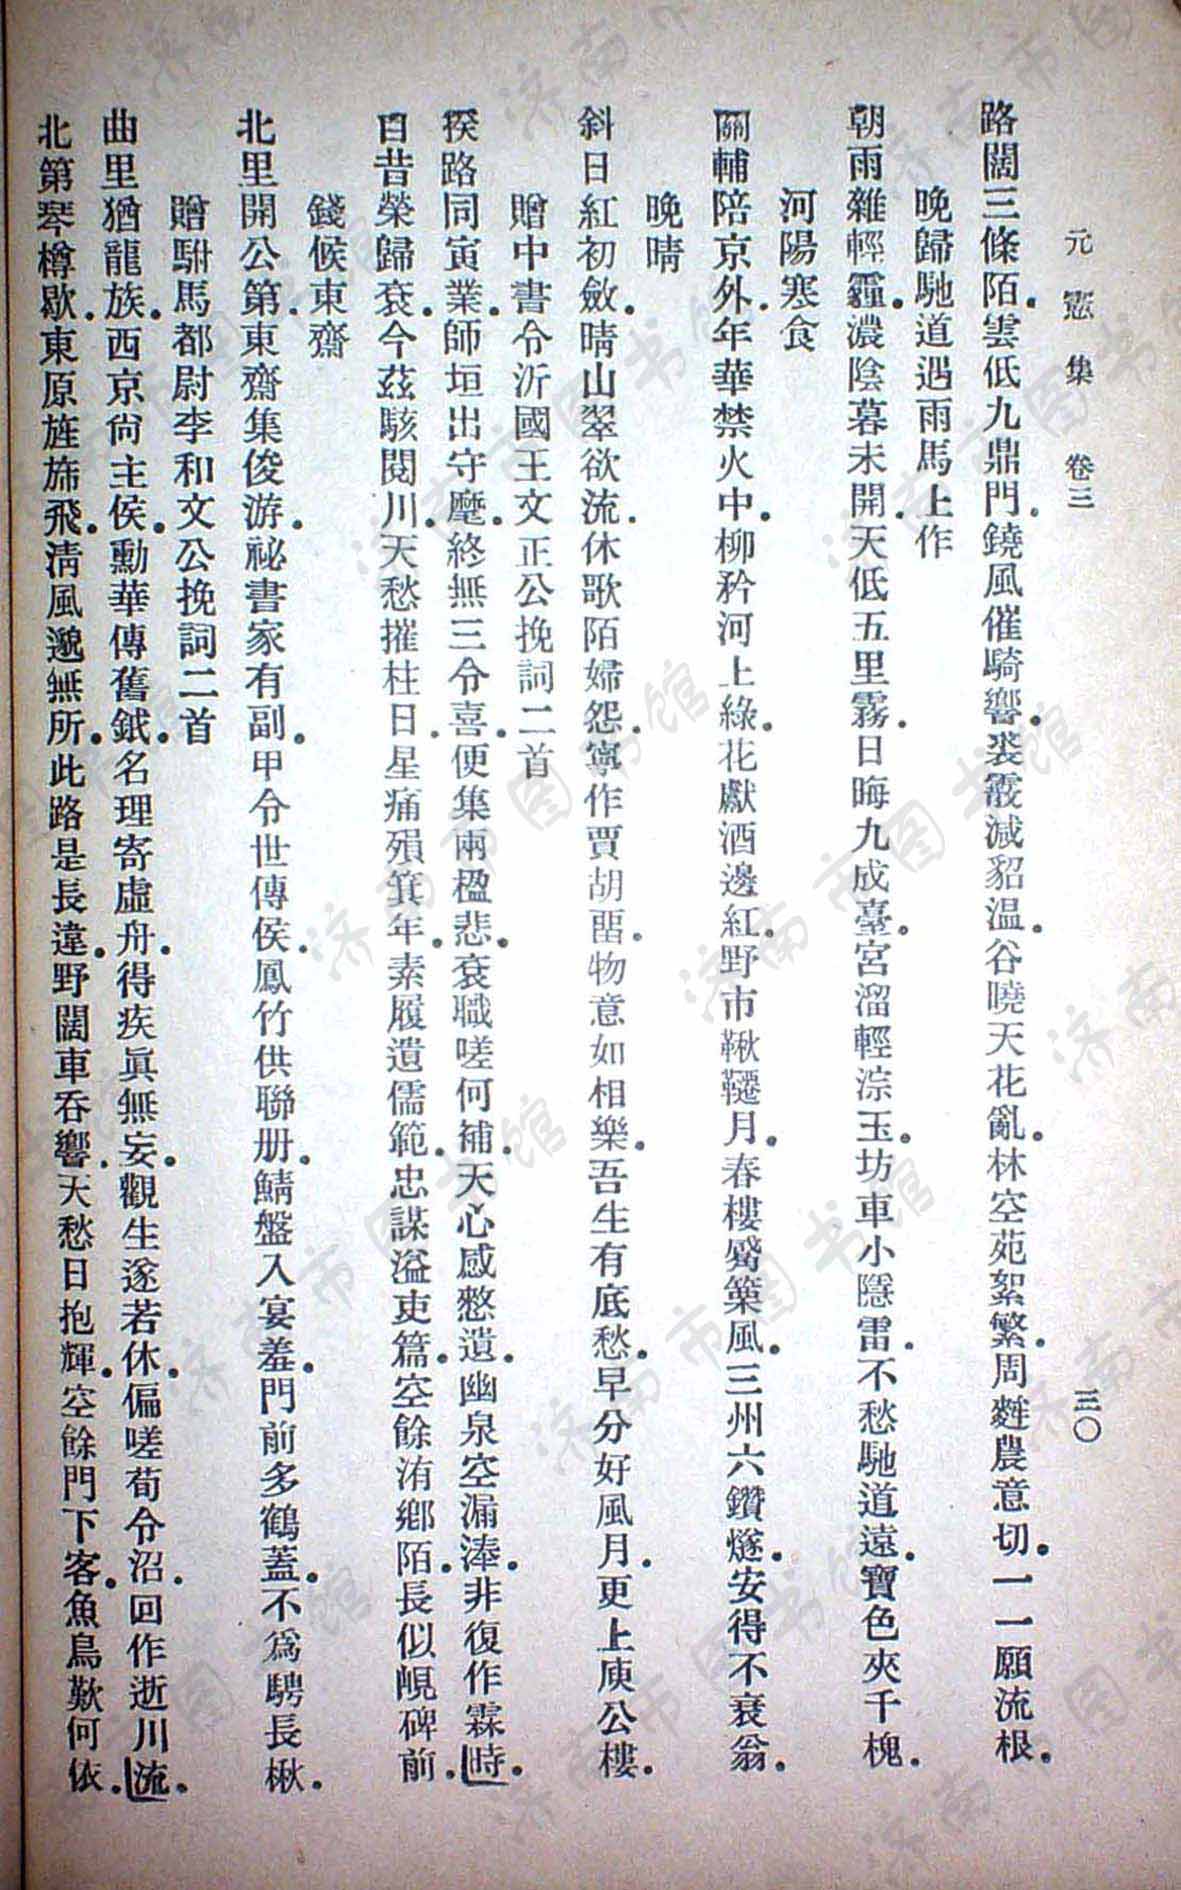 元憲集　卷三　三〇
路闊三條陌。雲低九鼎門。鐃風催騎響。裘霰減貂溫。谷曉天花亂。林空苑絮繁。周麰農意切。一一願流根。
晚歸馳道遇雨馬上作
朝雨雜輕霾。濃陰暮未開。天低五里霧。日晦九成臺。宮溜輕淙玉。坊車小隱雷。不愁馳道遠。寶色夾千槐。
河陽寒食
關輔陪京外。年華禁火中。柳矜河上綠。花獻酒邊紅。野市鞦韆月。春樓觱篥風。三州六鑽燧。安得不衰翁。
晚晴
斜日紅初斂。晴山翠欲流。休歌陌婦怨。寧作賈胡留。物意如相樂。吾生有底愁。早分好風月。更上庾公樓。
贈中書令沂國王文正公挽詞二首
揆路同寅業。師垣出守麾。終無三令喜。便集兩楹悲。袞職嗟何補。天心感憖遺。幽泉空漏溱。非復作霖時。
白昔榮歸袞。今茲駭閱川。天愁摧柱日。星痛殞箕年。素履遺儒範。忠謀溢吏篇。空餘洧鄉陌。長似峴碑前。
錢候東齋
北里開公第。東齋集俊游。祕書家有副。甲令世傳侯。鳳竹供聯册。鯖盤入宴羞。門前多鶴蓋。不爲騁長楸。
贈駙馬都尉李和文公挽詞二首
曲里猶龍族。西京尙主侯。勳華傳舊鉞。名理寄虛舟。得疾眞無妄。觀生遂若休。偏嗟荀令沼。回作逝川流。
北第琴樽歇。東原旌旆飛。淸風邈無所。此路是長違。野闊車吞響。天愁日抱輝。空餘門下客。魚鳥歎何依。